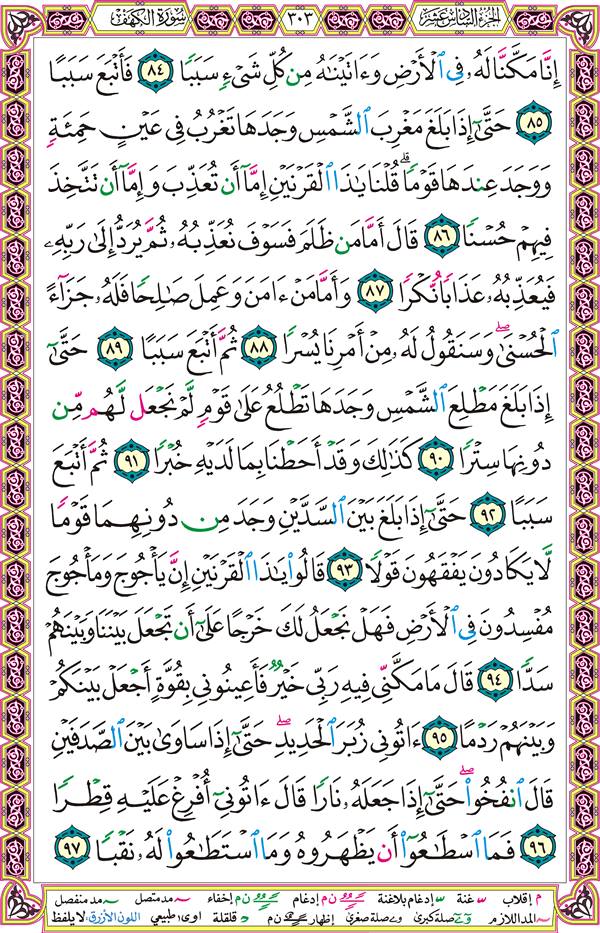 الجزء السادس عشر ٣٠٣ سورة الكهف
إِنَّا مَكَّنَّا لَهُۥ فِى ٱلْأَرْضِ وَءَاتَيْنَـٰهُ مِن كُلِّ شَىْءٍ سَبَبًا ٨٤ فَأَتْبَعَ سَبَبًا
٨٥ حَتَّىٰٓ إِذَا بَلَغَ مَغْرِبَ ٱلشَّمْسِ وَجَدَهَا تَغْرُبُ فِى عَيْنٍ حَمِئَةٍ
وَوَجَدَ عِندَهَا قَوْمًا ۗ قُلْنَا يَـٰذَا ٱلْقَرْنَيْنِ إِمَّآ أَن تُعَذِّبَ وَإِمَّآ أَن تَتَّخِذَ
فِيهِمْ حُسْنًا ٨٦ قَالَ أَمَّا مَن ظَلَمَ فَسَوْفَ نُعَذِّبُهُۥ ثُمَّ يُرَدُّ إِلَىٰ رَبِّهِۦ
فَيُعَذِّبُهُۥ عَذَابًا نُّكْرًا ٨٧ وَأَمَّا مَنْ ءَامَنَ وَعَمِلَ صَـٰلِحًا فَلَهُۥ جَزَآءً
ٱلْحُسْنَىٰ ۖ وَسَنَقُولُ لَهُۥ مِنْ أَمْرِنَا يُسْرًا ٨٨ ثُمَّ أَتْبَعَ سَبَبًا ٨٩ حَتَّىٰٓ
إِذَا بَلَغَ مَطْلِعَ ٱلشَّمْسِ وَجَدَهَا تَطْلُعُ عَلَىٰ قَوْمٍ لَّمْ نَجْعَل لَّهُم مِّن
دُونِهَا سِتْرًا ٩٠ كَذَٰلِكَ وَقَدْ أَحَطْنَا بِمَا لَدَيْهِ خُبْرًا ٩١ ثُمَّ أَتْبَعَ
سَبَبًا ٩٢ حَتَّىٰٓ إِذَا بَلَغَ بَيْنَ ٱلسَّدَّيْنِ وَجَدَ مِن دُونِهِمَا قَوْمًا
لَّا يَكَادُونَ يَفْقَهُونَ قَوْلًا ٩٣ قَالُوا۟ يَـٰذَا ٱلْقَرْنَيْنِ إِنَّ يَأْجُوجَ وَمَأْجُوجَ
مُفْسِدُونَ فِى ٱلْأَرْضِ فَهَلْ نَجْعَلُ لَكَ خَرْجًا عَلَىٰٓ أَن تَجْعَلَ بَيْنَنَا وَبَيْنَهُمْ
سَدًّا ٩٤ قَالَ مَا مَكَّنِّى فِيهِ رَبِّى خَيْرٌ فَأَعِينُونِى بِقُوَّةٍ أَجْعَلْ بَيْنَكُمْ
وَبَيْنَهُمْ رَدْمًا ٩٥ ءَاتُونِى زُبَرَ ٱلْحَدِيدِ ۖ حَتَّىٰٓ إِذَا سَاوَىٰ بَيْنَ ٱلصَّدَفَيْنِ
قَالَ ٱنفُخُوا۟ ۖ حَتَّىٰٓ إِذَا جَعَلَهُۥ نَارًا قَالَ ءَاتُونِىٓ أُفْرِغْ عَلَيْهِ قِطْرًا
٩٦ فَمَا ٱسْطَـٰعُوٓا۟ أَن يَظْهَرُوهُ وَمَا ٱسْتَطَـٰعُوا۟ لَهُۥ نَقْبًا ٩٧
م إقلاب غنة إدغام بلاغنة ن م إدغام ن م إخفاء مد متصل مد منفصل
المد اللازم صلة كبرى صلة صغرى إظهار ن م قلقلة اوى طبيعي اللون الأزرق: لا يلفظ